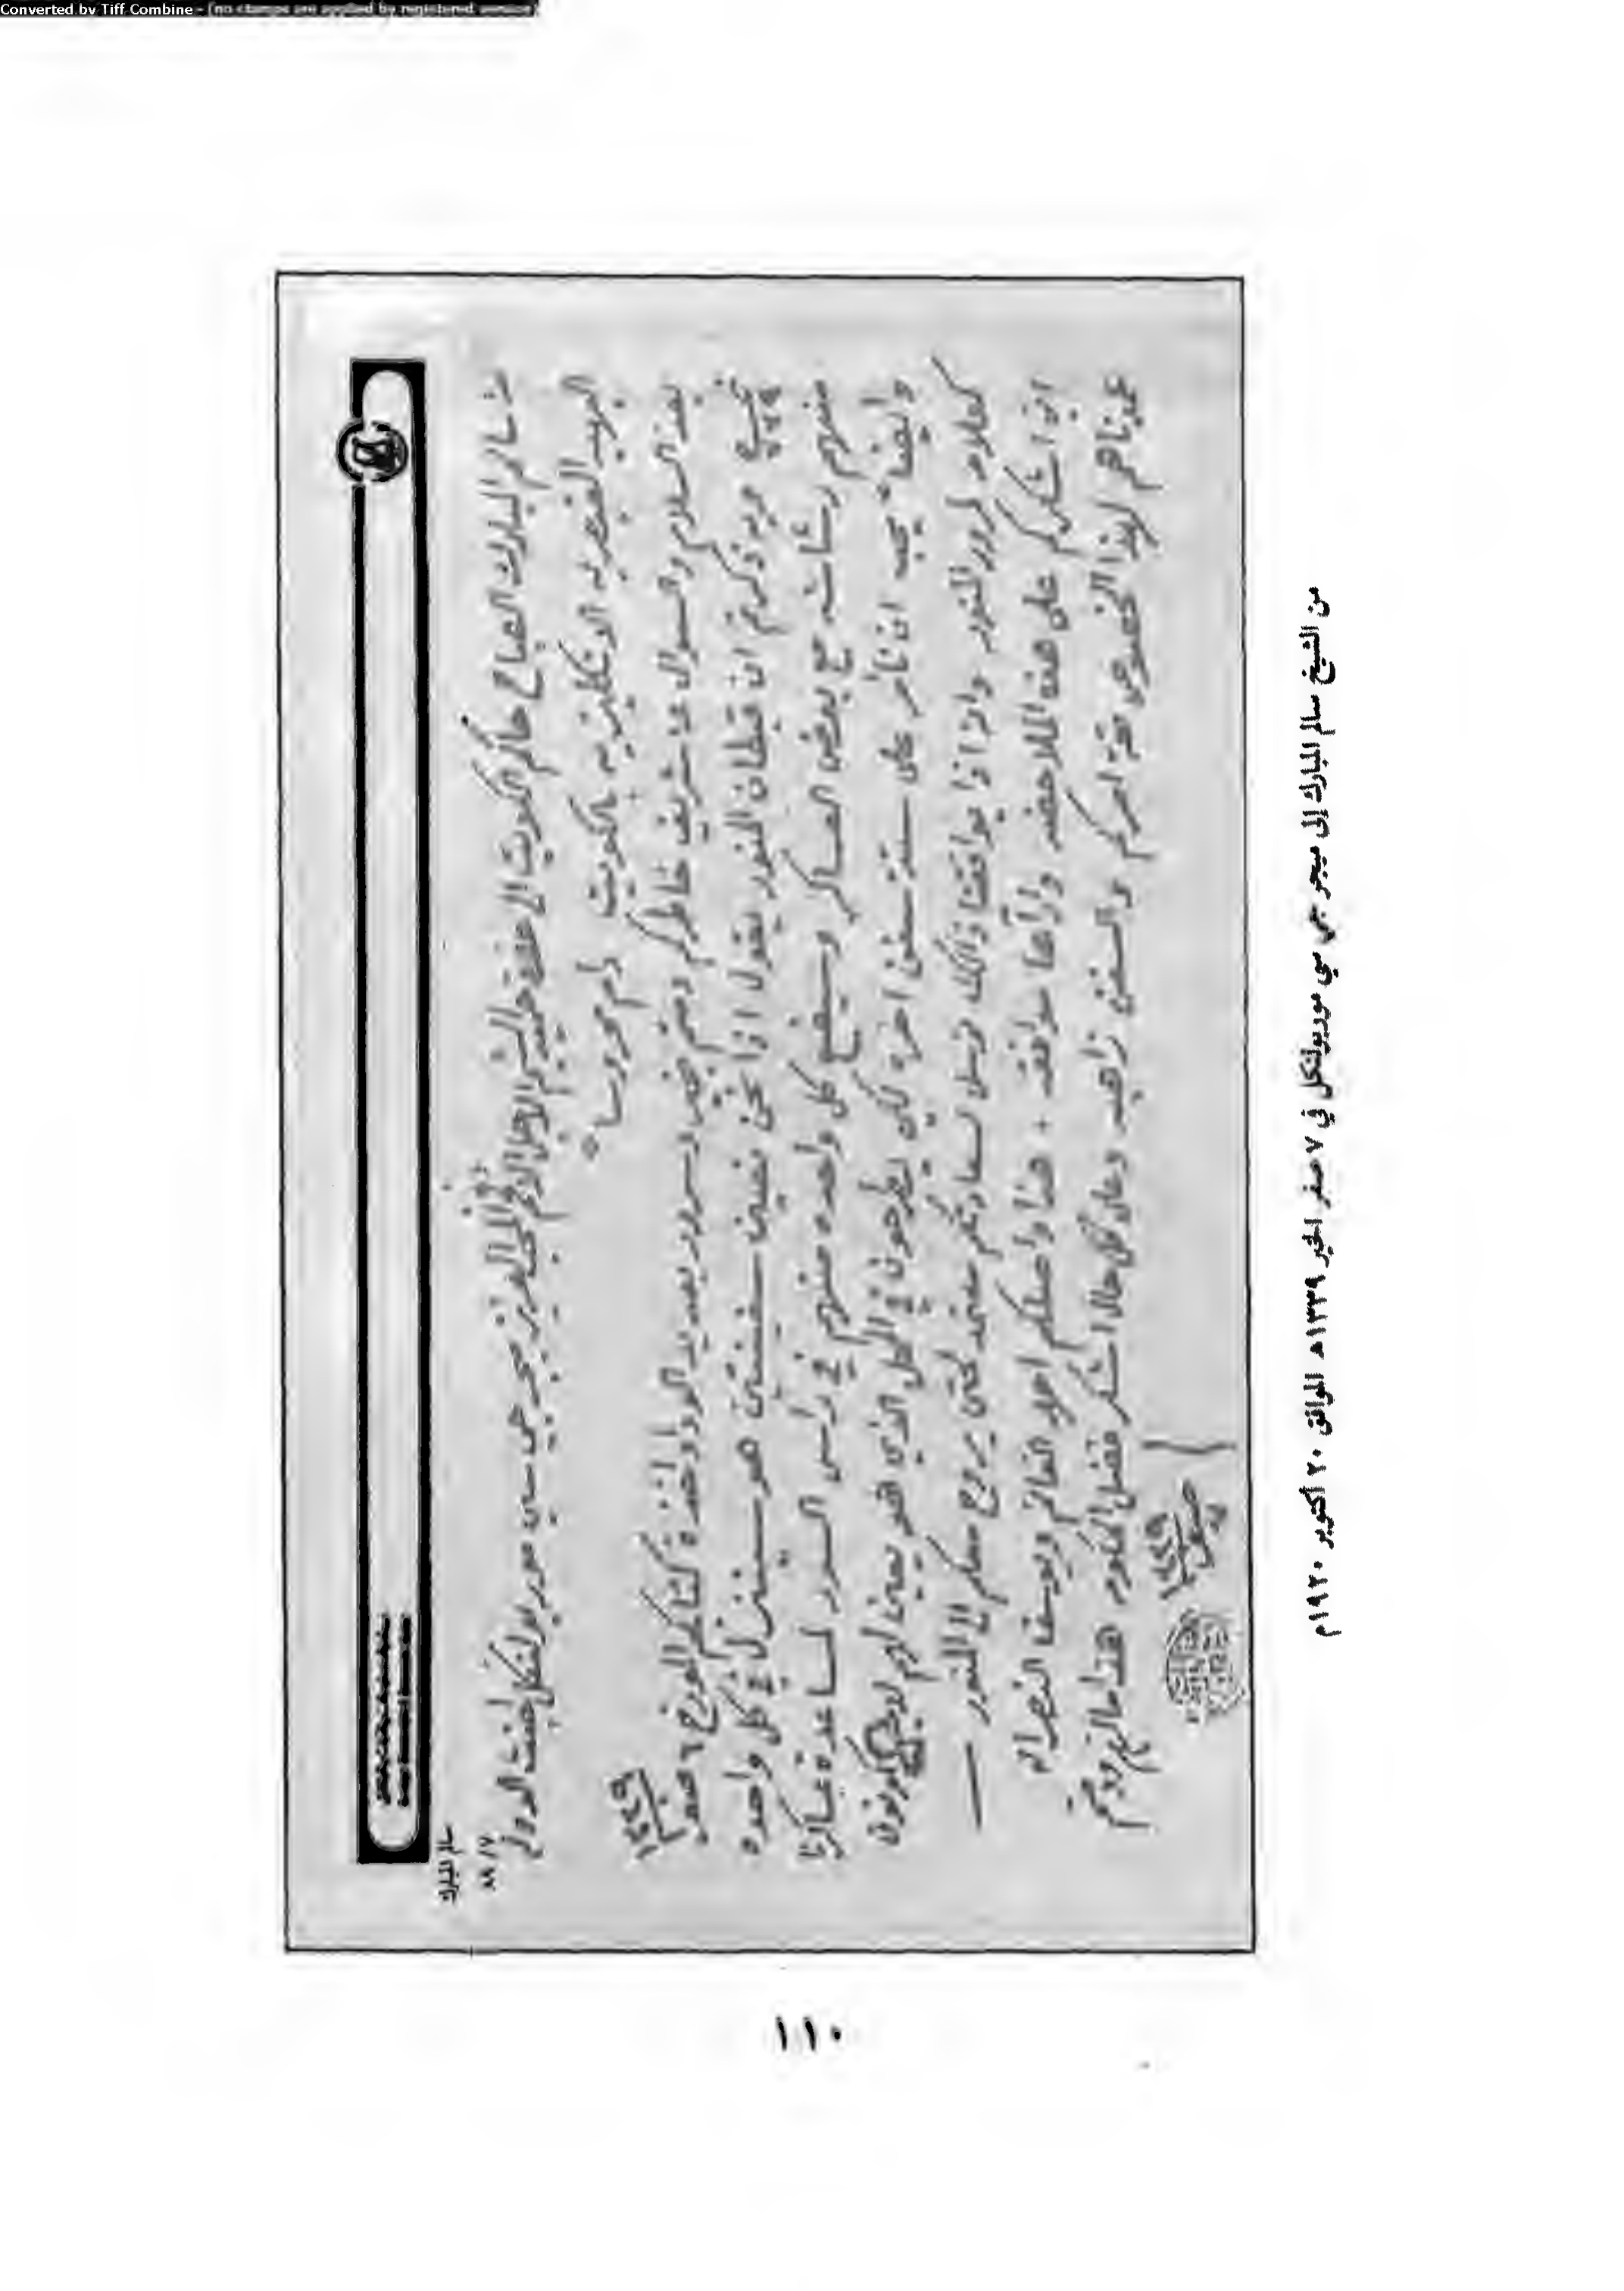 Converted by Tiff Combine - (no stamps are applied by registered version)
سالم المبارك
٨٨/٧
من سالم المبارك الصباح حاكم الكويت الى حضرة حميد الشيم الاجل الافخم المحب العزيز ميجر جي سي مور بولتكل اجنت الدولة
البهية القيصرية الانكليزية بالكويت دام محروسا
بعد السلام والسوال عن شريف خاطركم دمتم بخير وسرور بعديد الوداد اخذت كتابكم المورخ ٦ صفر ١٣٣٩
نمرة وبه ذكرتم ان قبطان المنور يقول اذا نحن نعين سفينتين هو سينزل في كل واحده
منهم رشاشه مع بعض العساكر وسيضع كل واحده منهم في راس السور لمساعدة عساكرنا
وايضا يجب ان نأمر على ستة سفن اخره لكي يطرحون في المحل الذي هو يعينه لهم لاجل يكونون
كعلامه لمرور المنور وان اذا يوافقنا ذالك نرسل لسعادتكم معتمد لكي يروح معكم الى المنور
انني اشكركم على هذه الملاحضه وأراها موافقه + هذا واصلكم احمد الغانم ويوسف النصرالله
عيناهم لهذا الخصوص تحت امركم والسفن زاهبه وعلى كل حال اشكر فضل الحكومه هذا مالزم ودمتم
٧ صفر ١٣٣٩
من الشيخ سالم المبارك إلى ميجر جي سي موربولتكل في ٧ صفر الخير ١٣٣٩هـ الموافق ٢٠ أكتوبر ١٩٢٠م
١١٠